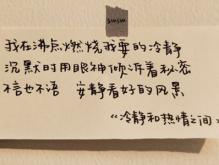 我在沸点燃烧我要的冷静
沉默时用眼神倾诉着秘密
不言也不语 安静看好的风景
《冷静和热情之间》